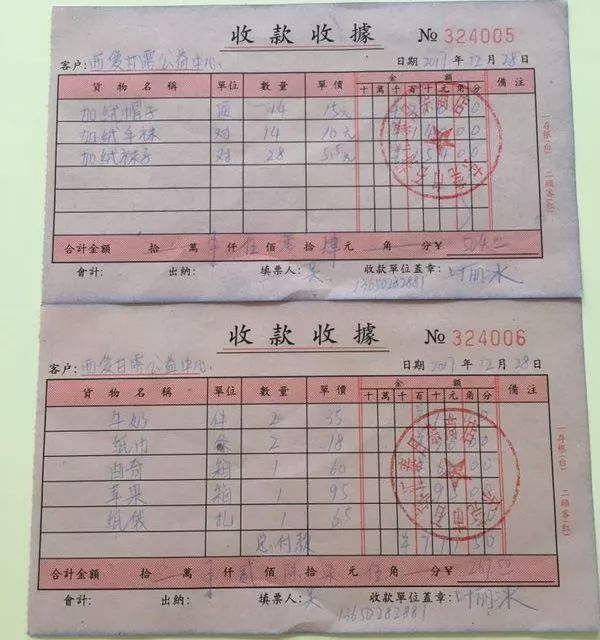 收款收據 № 324005
客户: 西愛甘露公益中心. 日期 2017 年 12 月 28 日
貨物名稱 單位 數量 單價 金額 備注
十 萬 千 百 十 元 角 分
加绒帽子 顶 14 15元
加绒手袜 对 14 10元
加绒袜子 对 28 5.5元
合計金額 拾 萬 仟 伍 佰 零 拾 肆 元 角 分 ¥ 504.00
會計: 出納: 填票人: 吴 收款單位蓋章: 叶丽冰
13650282881
一存根(白) 二顧客(紅)
收款收據 № 324006
客户: 西愛甘露公益中心. 日期 2017 年 12 月 28 日
貨物名稱 單位 數量 單價 金額 備注
十 萬 千 百 十 元 角 分
牛奶 件 2 35
纸巾 条 2 18
曲奇 箱 1 60
苹果 箱 1 95
纸袋 扎 1 6.5
总付款 ¥ 7 7 1 5 0
合計金額 拾 萬 仟 貳 佰 陆 拾 柒 元 伍 角 分 ¥ 267.50
會計: 出納: 填票人: 吴 收款單位蓋章: 叶丽冰
13650282881
一存根(白) 二顧客(紅)